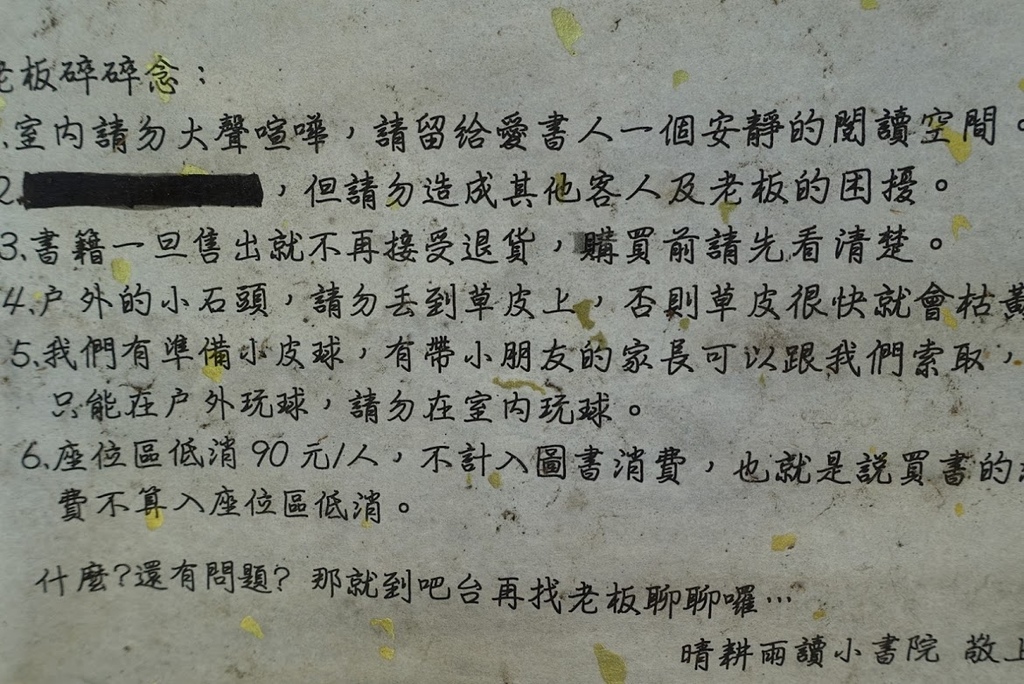 老板碎碎念：
1.室內請勿大聲喧嘩，請留給愛書人一個安靜的閱讀空間。
2. ，但請勿造成其他客人及老板的困擾。
3.書籍一旦售出就不再接受退貨，購買前請先看清楚。
4.戶外的小石頭，請勿丟到草皮上，否則草皮很快就會枯黃
5.我們有準備小皮球，有帶小朋友的家長可以跟我們索取，
只能在戶外玩球，請勿在室內玩球。
6.座位區低消90元/人，不計入圖書消費，也就是說買書的
費不算入座位區低消。
什麼?還有問題? 那就到吧台再找老板聊聊囉…
晴耕雨讀小書院 敬上